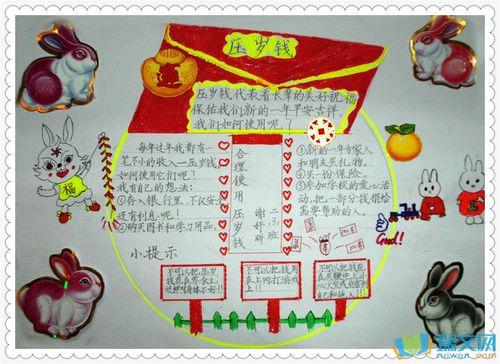 压岁钱
压岁钱代表着长辈的美好祝福
保佑我们新的一年平安吉祥。
我们如何使用呢？
福
每年过年我都有一
笔不小的收入—压岁钱。
如何使用它们呢？
我有自己的想法：
①存入银行里，不仅安全
还有利息呢！
②购买图书和学习用品。
合理使用压岁钱
二(3)班
谢妤昕
③新的一年为家人
和朋友买礼物。
④买一份保险。
⑤参加学校的爱心活
动，把一部分钱捐给
需要帮助的人。
Good!
小提示
不可以把压岁
钱花在零食上，
不可以把钱用
在上网打游戏
上！！
不可以把钱花